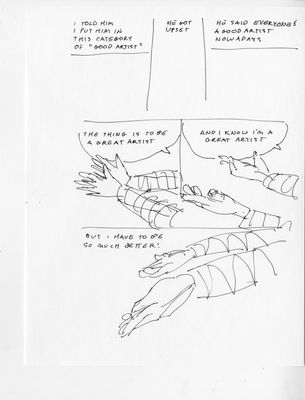 I TOLD HIM
I PUT HIM IN
THIS CATEGORY
OF "GOOD ARTIST"
HE GOT
UPSET
HE SAID EVERYONE'S
A GOOD ARTIST
NOWADAYS
THE THING IS TO BE
A GREAT ARTIST
AND I KNOW I'M A
GREAT ARTIST
BUT I HAVE TO BE
SO MUCH BETTER!